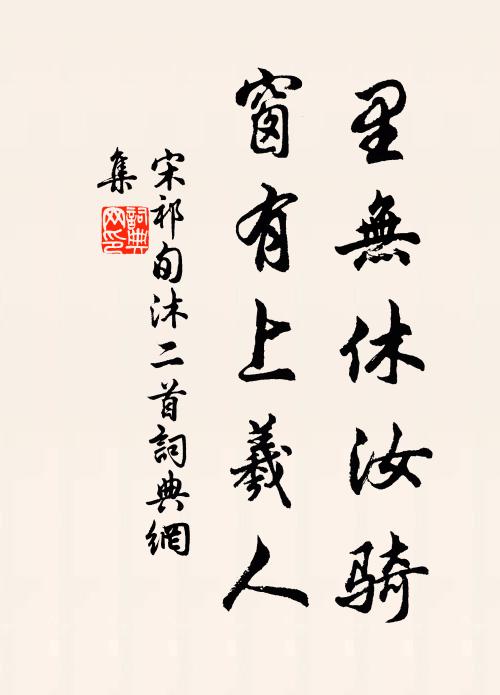 里無休汝骑
窗有上羲人
宋祁旬沐二首詞典網
集
詞典网印